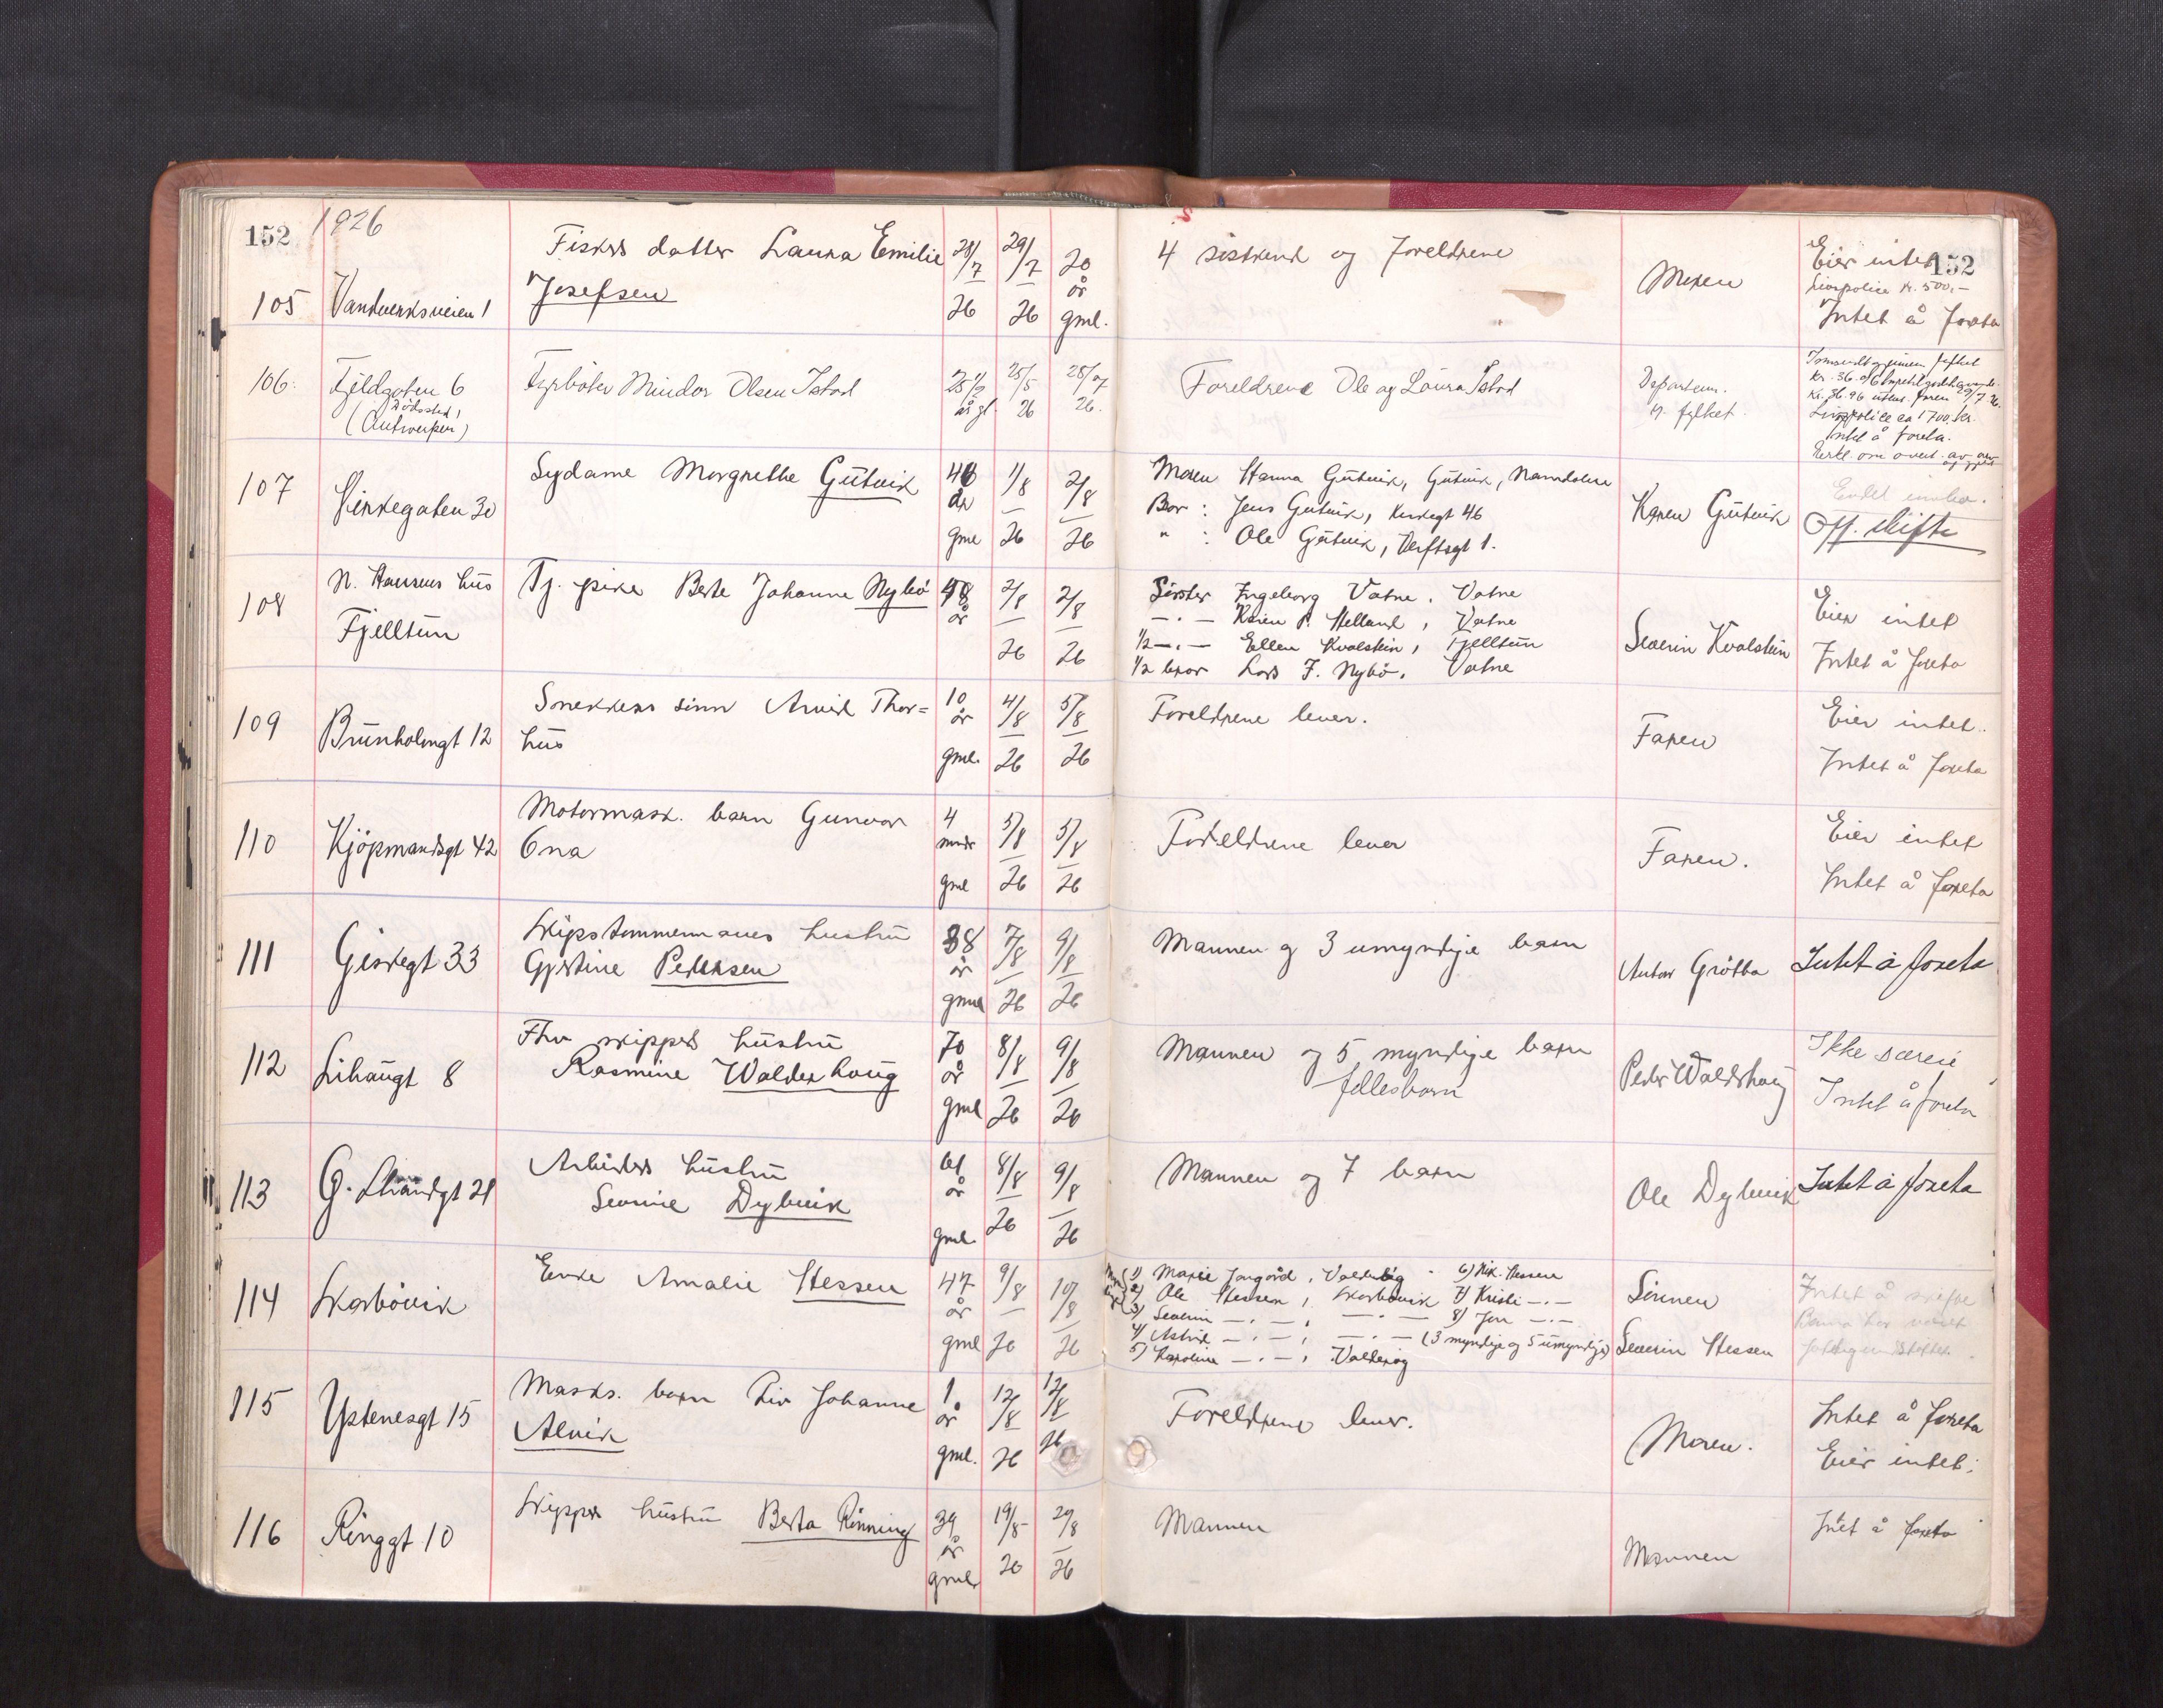 152 1926
105 Vandverksveien 1
Fiskers datter Laura Emilie
Josefsen
28/7 26
29/7 26
20 år gml.
4 søskend og foreldrene
Moren
Eier intet 152
Livspolice kr. 500,-
Intet å foreta
106. Fjeldgaten 6
Dödssted,
(Antwerpen)
Fyrböter Mindor Olsen Istad
25 1/2 år gl.
25/5 26
28/7 26.
Foreldrene Ole og Laura Istad
Departem.
n. fylket
Livspolice ca 1700 kr.
Intet å foreta.
107 Kirkegaten 30
Sydame Margrethe Gutvik
44 år gml
1/8 26
2/8 26
Moren Hanna Gutvik, Gutvik, Namdalen
Bror : Jens Gutvik, Kirkegt 46
" : Ole Gutvik, Verftsgt 1.
Karen Gutvik
Endel innbo.
Off. skifte
108 N. Hansens hus
Fjelltun
Tj. pike Berte Johanne Nybö
48 år
2/8 26
2/8 26
Söster Ingeborg Vatne. Vatne
— . — Karen P. Helland, Vatne
1/2 — . — Ellen Kvalstein, Fjelltun
1/2 bror Lars J. Nybö. Vatne
Severin Kvalstein
Eier intet
Intet å foreta
109 Brunholmgt 12
Snekkers sönn Arvid Thor=
hus
10 år gml.
4/8 26
5/8 26
Foreldrene lever.
Faren
Eier intet.
Intet å foreta
110 Kjöpmandsgt 42
Motormask. barn Gunvor
Ona
4 mndr gml
5/8 26
5/8 26
Foreldrene lever
Faren.
Eier intet
Intet å foreta
111 Giskegt 33
Skipstömmermanns hustru
Gjertine Pedersen
38 år gml
7/8 26
9/8 26
Mannen og 3 umyndige barn
Anton Grötta
Intet å foreta
112 Lihaugt 8
Fhv skippers hustru
Rasmine Walderhaug
70 år gml
8/8 26
9/8 26
Mannen og 5 myndige barn
fellesbarn
Peder Walderhaug
Ikke særeie
Intet å foreta
113 G. Strandgt 21
Arbeiders hustru
Severine Dybvik
61 år gml.
8/8 26
9/8 26
Mannen og 7 barn
Ole Dybvik
Intet å foreta
114 Skarbövik
Enke Amalie Hessen
47 år gml
9/8 26
10/8 26
1) Marie Jangård, Valderög 6) Nik. Hessen
2) Ole Hessen, Skarbövik 7) Kristi — . —
3) Severin — . —, — . — 8) Jon — . —
4) Astrid — . —, — . — (3 myndige og 5 umyndige)
5) Karoline — . —, Valderög
Sönnen
Severin Hessen
Intet å skifte
115 Ystenesgt 15
Masks. barn Liv Johanne
Alvik
1 år gml.
12/8 26
12/8 26
Foreldrene lever.
Moren.
Intet å foreta
Eier intet.
116 Ringgt. 10
Skippers hustru Berta Rönning
39 år gml
19/8 26
20/8 26
Mannen
Mannen
Intet å foreta